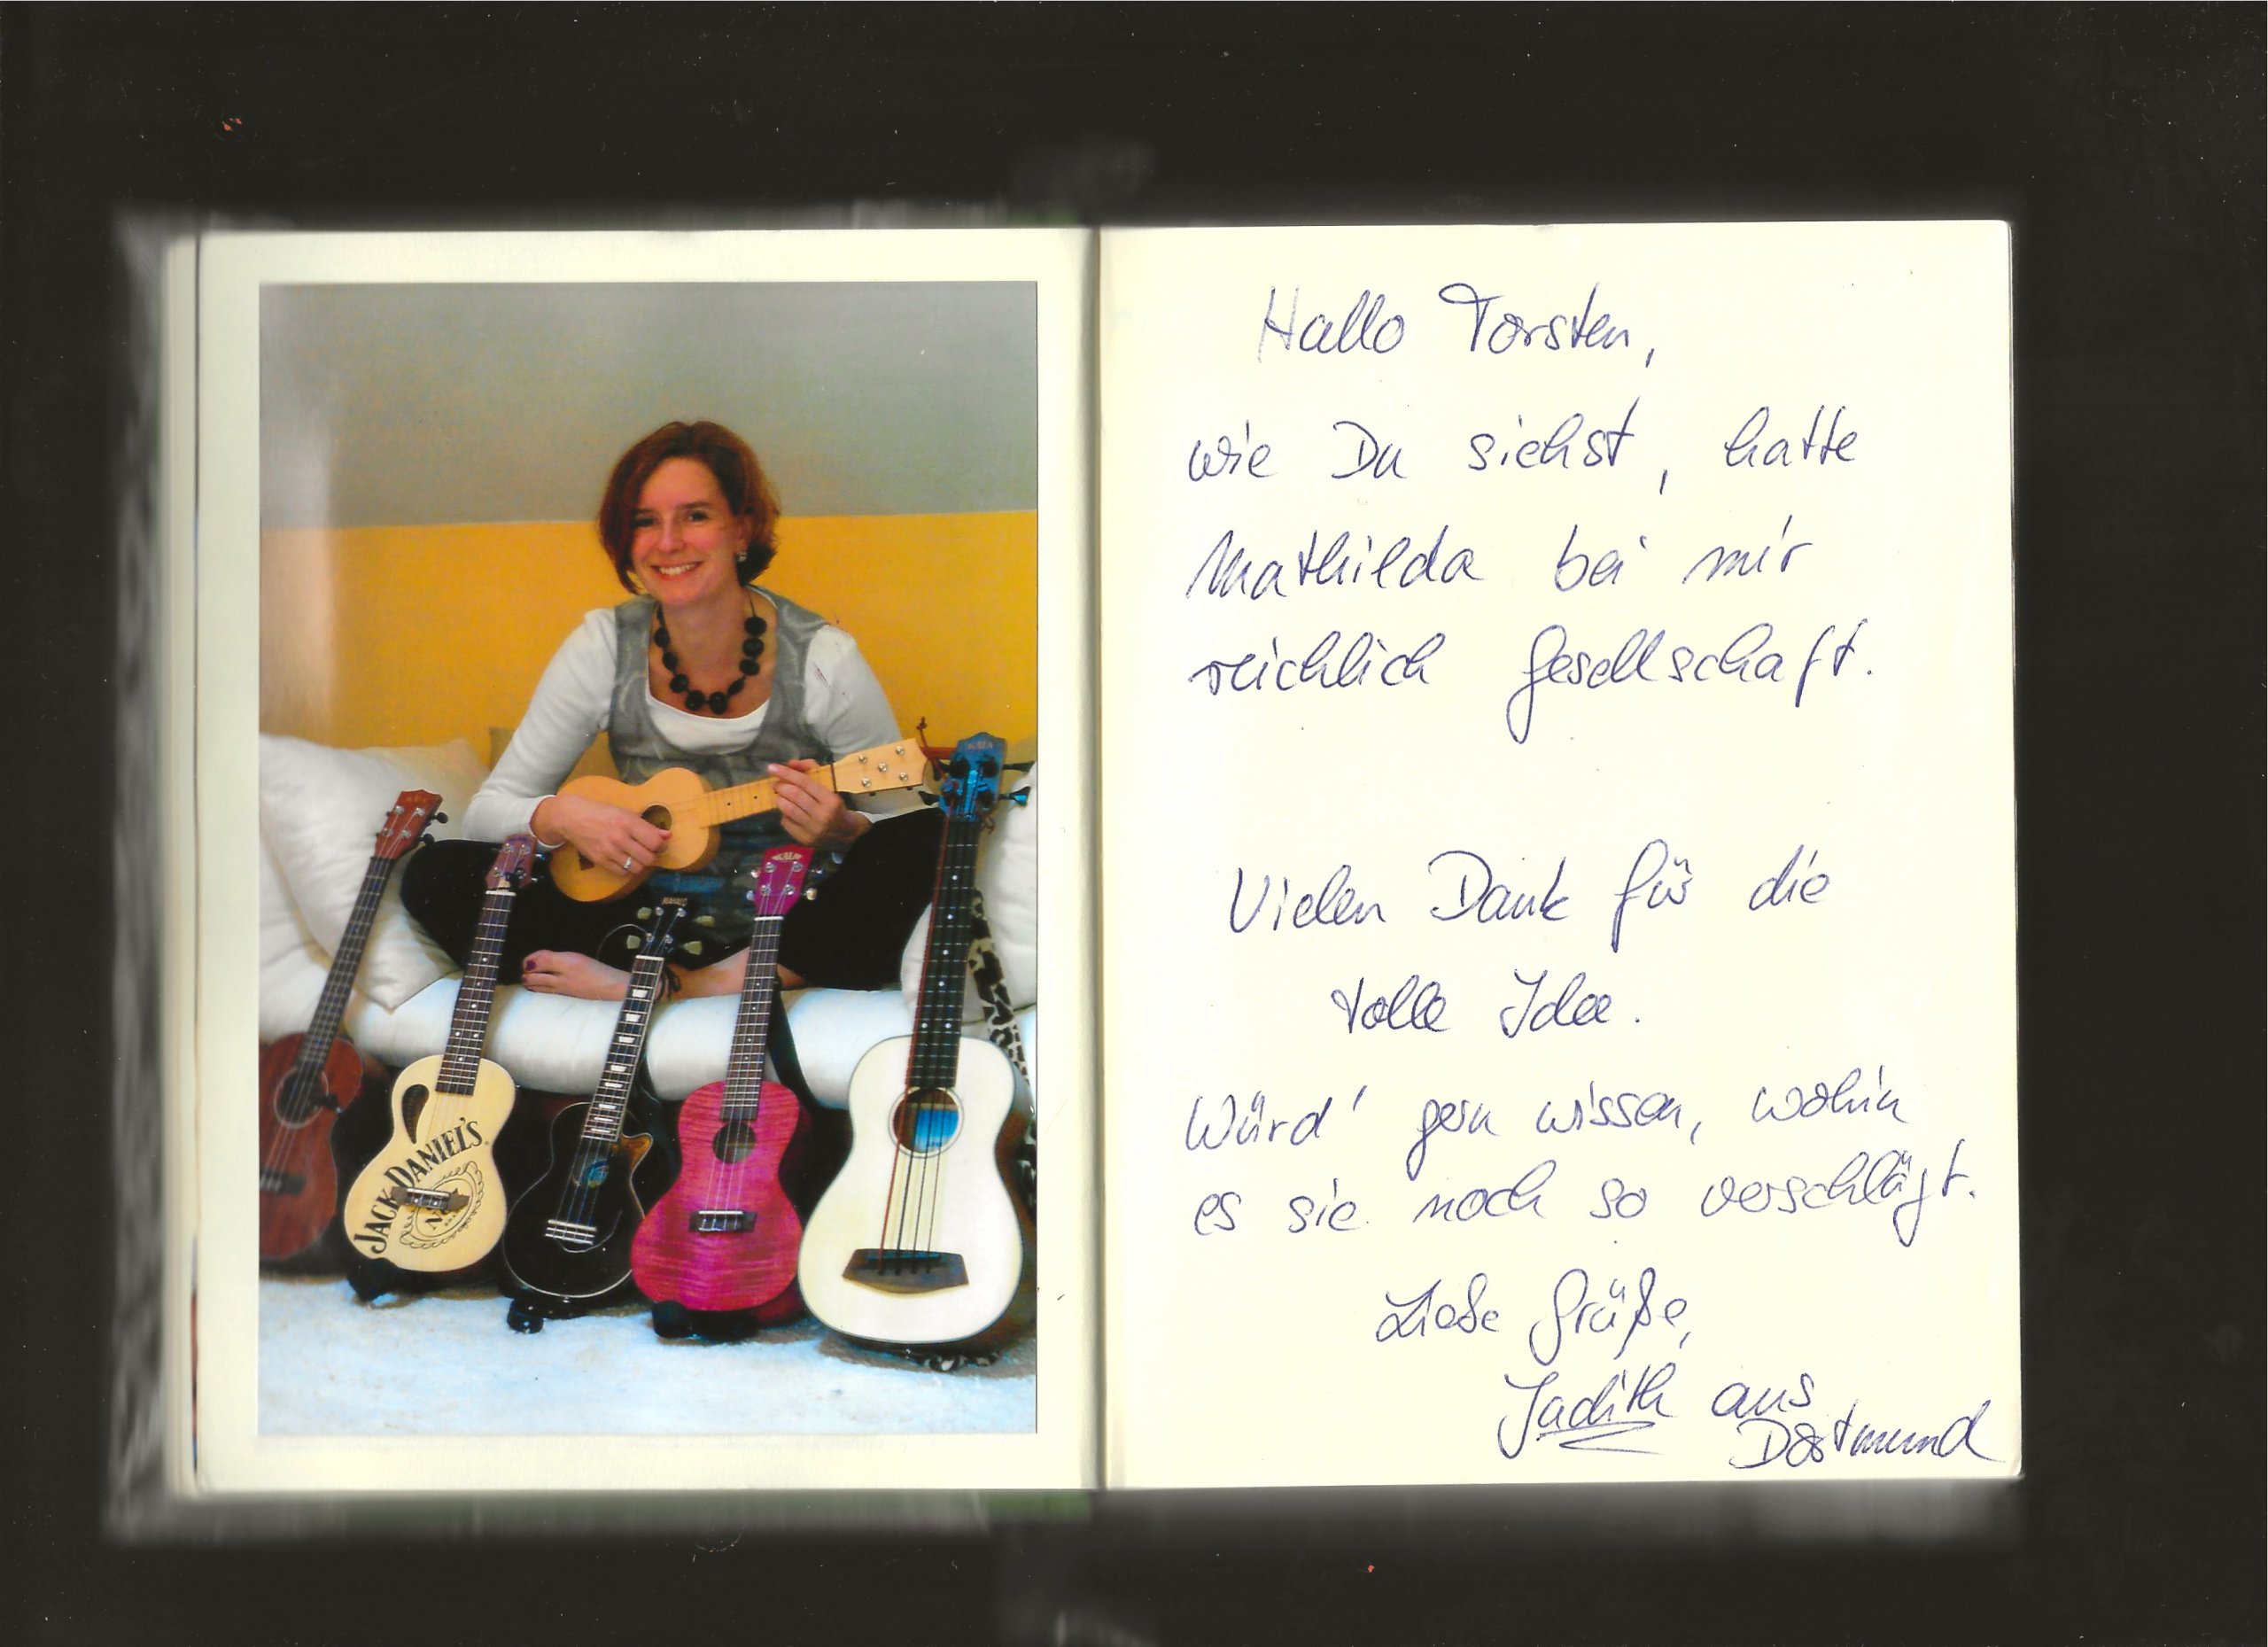 Hallo Torsten,
wie Du siehst, hatte
Mathilda bei mir
reichlich Gesellschaft.
Vielen Dank für die
tolle Idee.
Würd' gern wissen, wohin
es sie noch so verschlägt.
Liebe Grüße,
Judith aus
Dortmund
KALA
KALA
JACK DANIEL'S